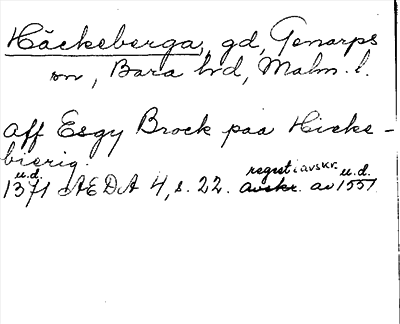 Häckeberga, gd, Genarps
sn, Bara hd, Malm. l.
aff Esgy Brock paa Hicke-
bierig.
u.d. regest i avskr. u.d.
1371 ÆDA 4, s. 22. avskr. av 1551